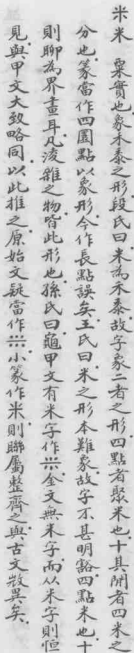 米米　粟實也象禾黍之形段氏曰米為禾黍故字象二者之形四點者聚米也十其閒者四米之
分也篆當作四圓點以象形今作長點誤矣王氏曰米之形本難象故字不甚明豁四點米也十
則聊為界畫耳凡淩雜之物皆此形也孫氏曰龜甲文有米字作金文無米字而从米字則恒
見與甲文大致略同以此推之原始文疑當作小篆作米則聯屬整齊之與古文𢿙異矣